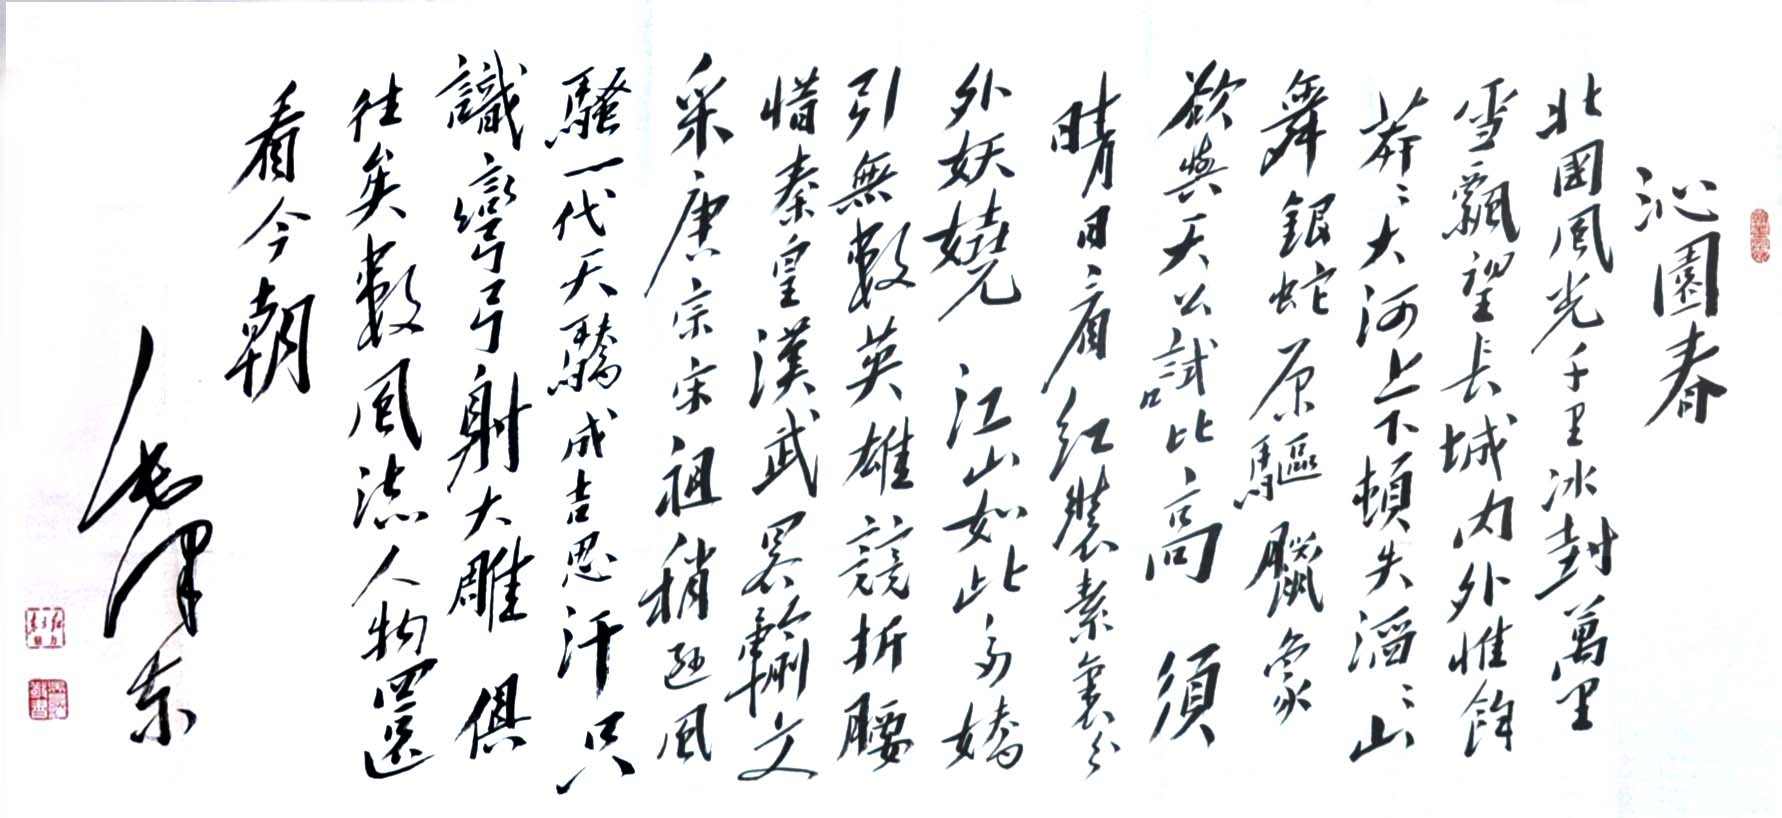 沁園春
北國風光千里冰封萬里
雪飄望長城内外惟餘
莽〻大河上下頓失滔〻山
舞銀蛇原驅臘象
欲與天公試比高 須
晴日看紅裝素裹分
外妖嬈 江山如此多嬌
引無數英雄競折腰
惜秦皇漢武畧輸文
采唐宗宋祖稍遜風
騷一代天驕成吉思汗只
識彎弓射大雕 俱
往矣數風流人物還
看今朝
毛澤東